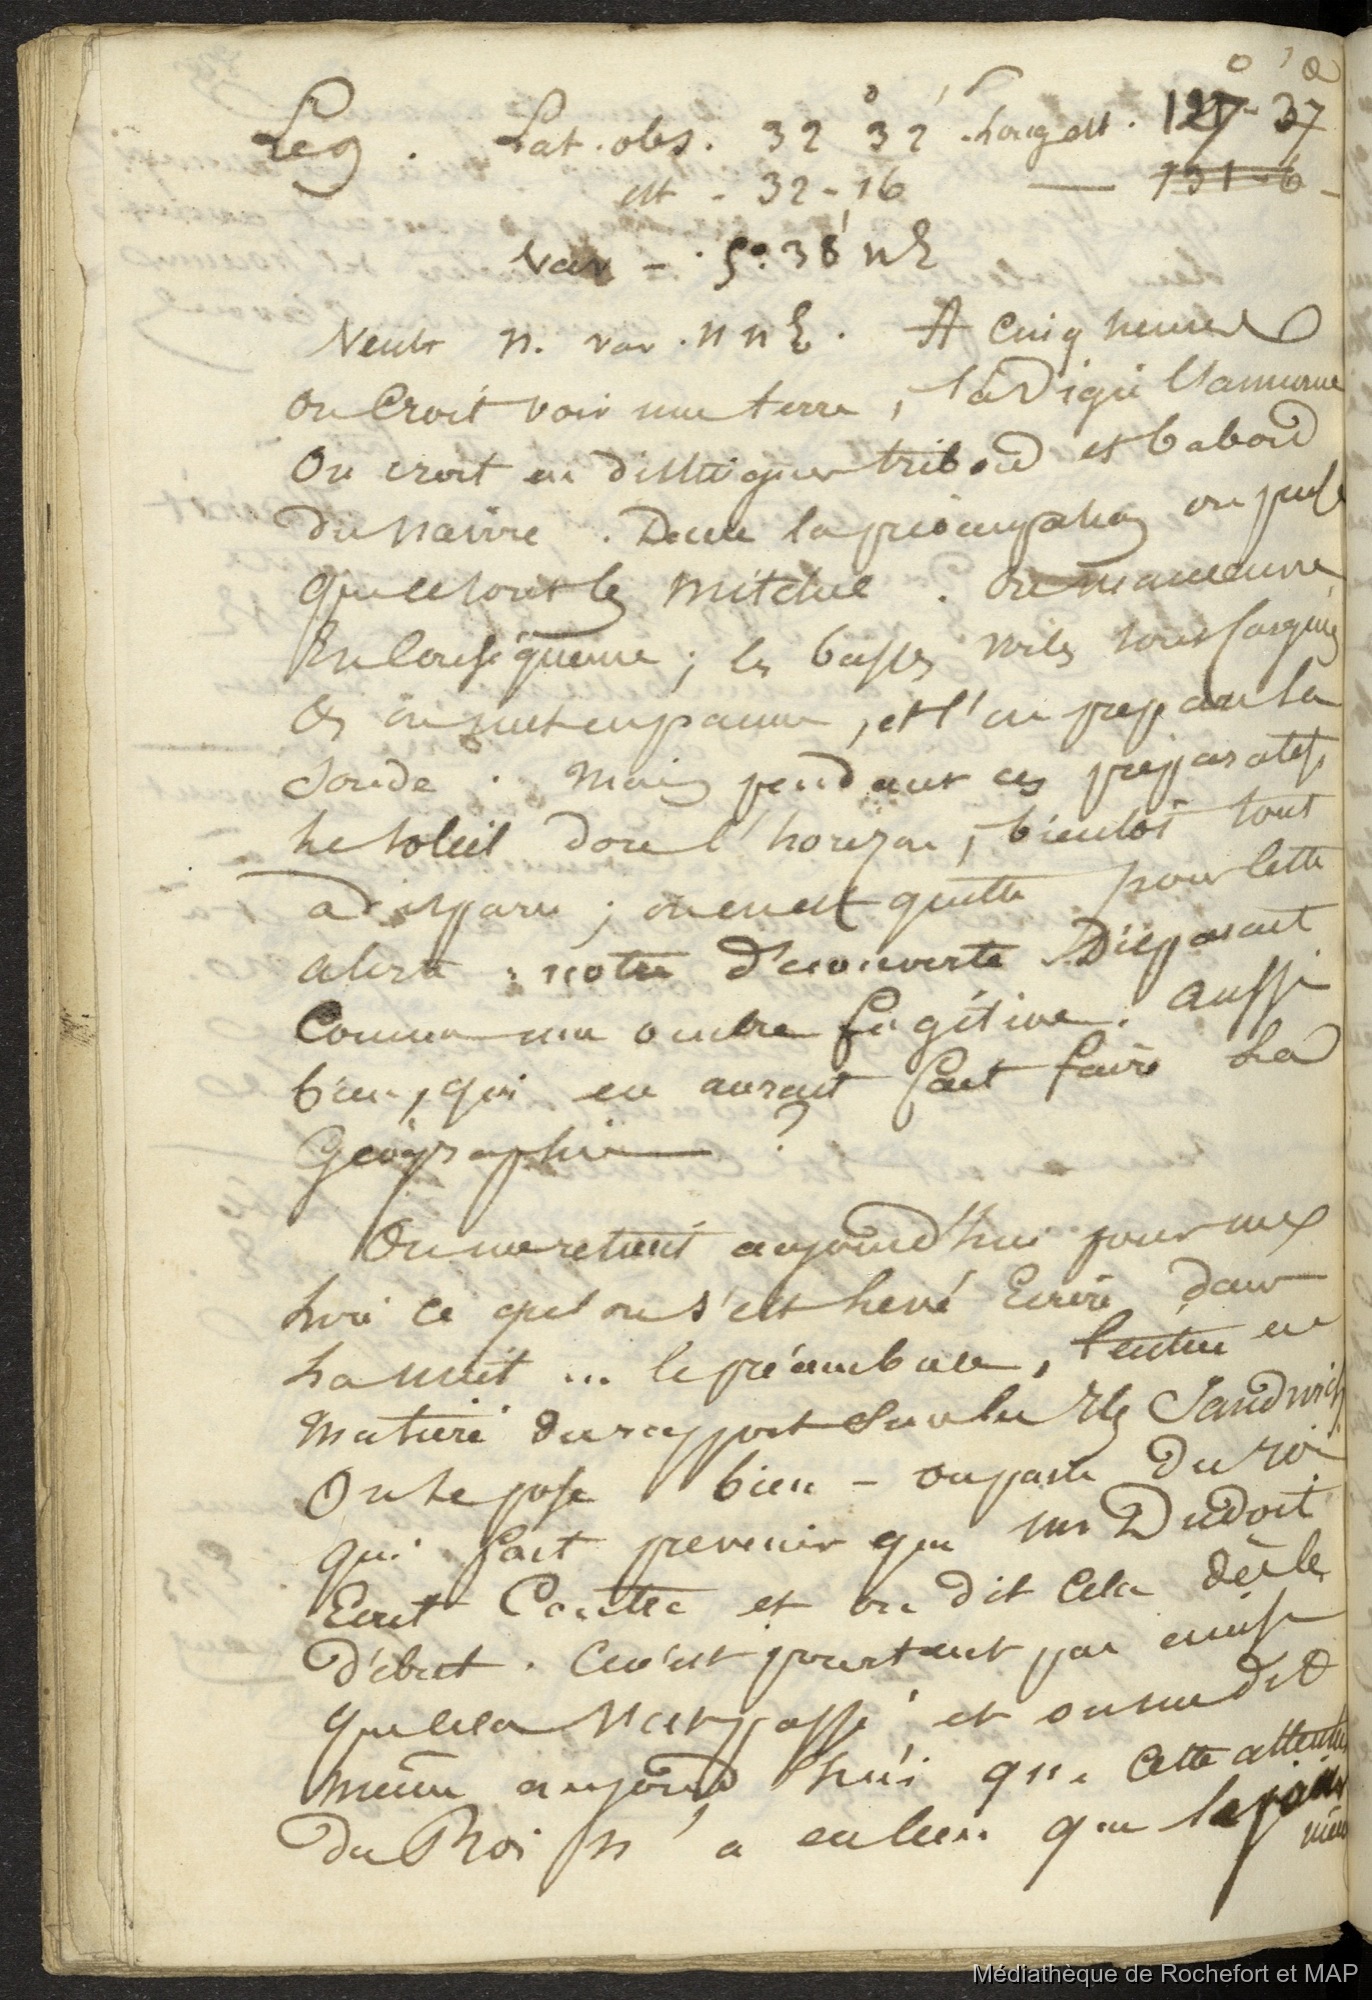 Le 9. Lat. obs. 32° 32' Long est. 127° 37'
est - 32 - 16 — 131 - 6 -
var - 5° 38' n E
Vents n. var. n n E. A cinq heures
on croit voir une terre, la vigie l'annonce
on croit en distinguer tribord et babord
du navire. Dans la préocupation on pense
que ce sont les Mitchel. on manoeuvre
En conséquence ; les basses voiles sont carguées
on met en panne, et l'on prepare la
sonde. Mais pendant ces préparatifs,
le soleil dore l'horizon, bientôt tout
a disparu ; on en est quitte pour cette
alerte : notre d'ecouverte Disparait
Comme une ombre fugitive. aussi
bien, qu'en aurait fait faire la
Géographie ?
On me retient aujourd'hui pour me
lire ce qu'on s'est levé Ecrire dans
la nuit ... le préambule, l'entrée en
matiere du rapport sur les Iles Sandwich
On se pose bien - on parle du roi
qui fait prevenir que mr Dudoit
Ecrit Contre et on dit cela dès le
d'ebut. Ce n'est pourtant pas ainsi
que cela s'est passé et on me dit
même aujourd'hui que cette attention
du Roi n'a eu lieu que le jour
même